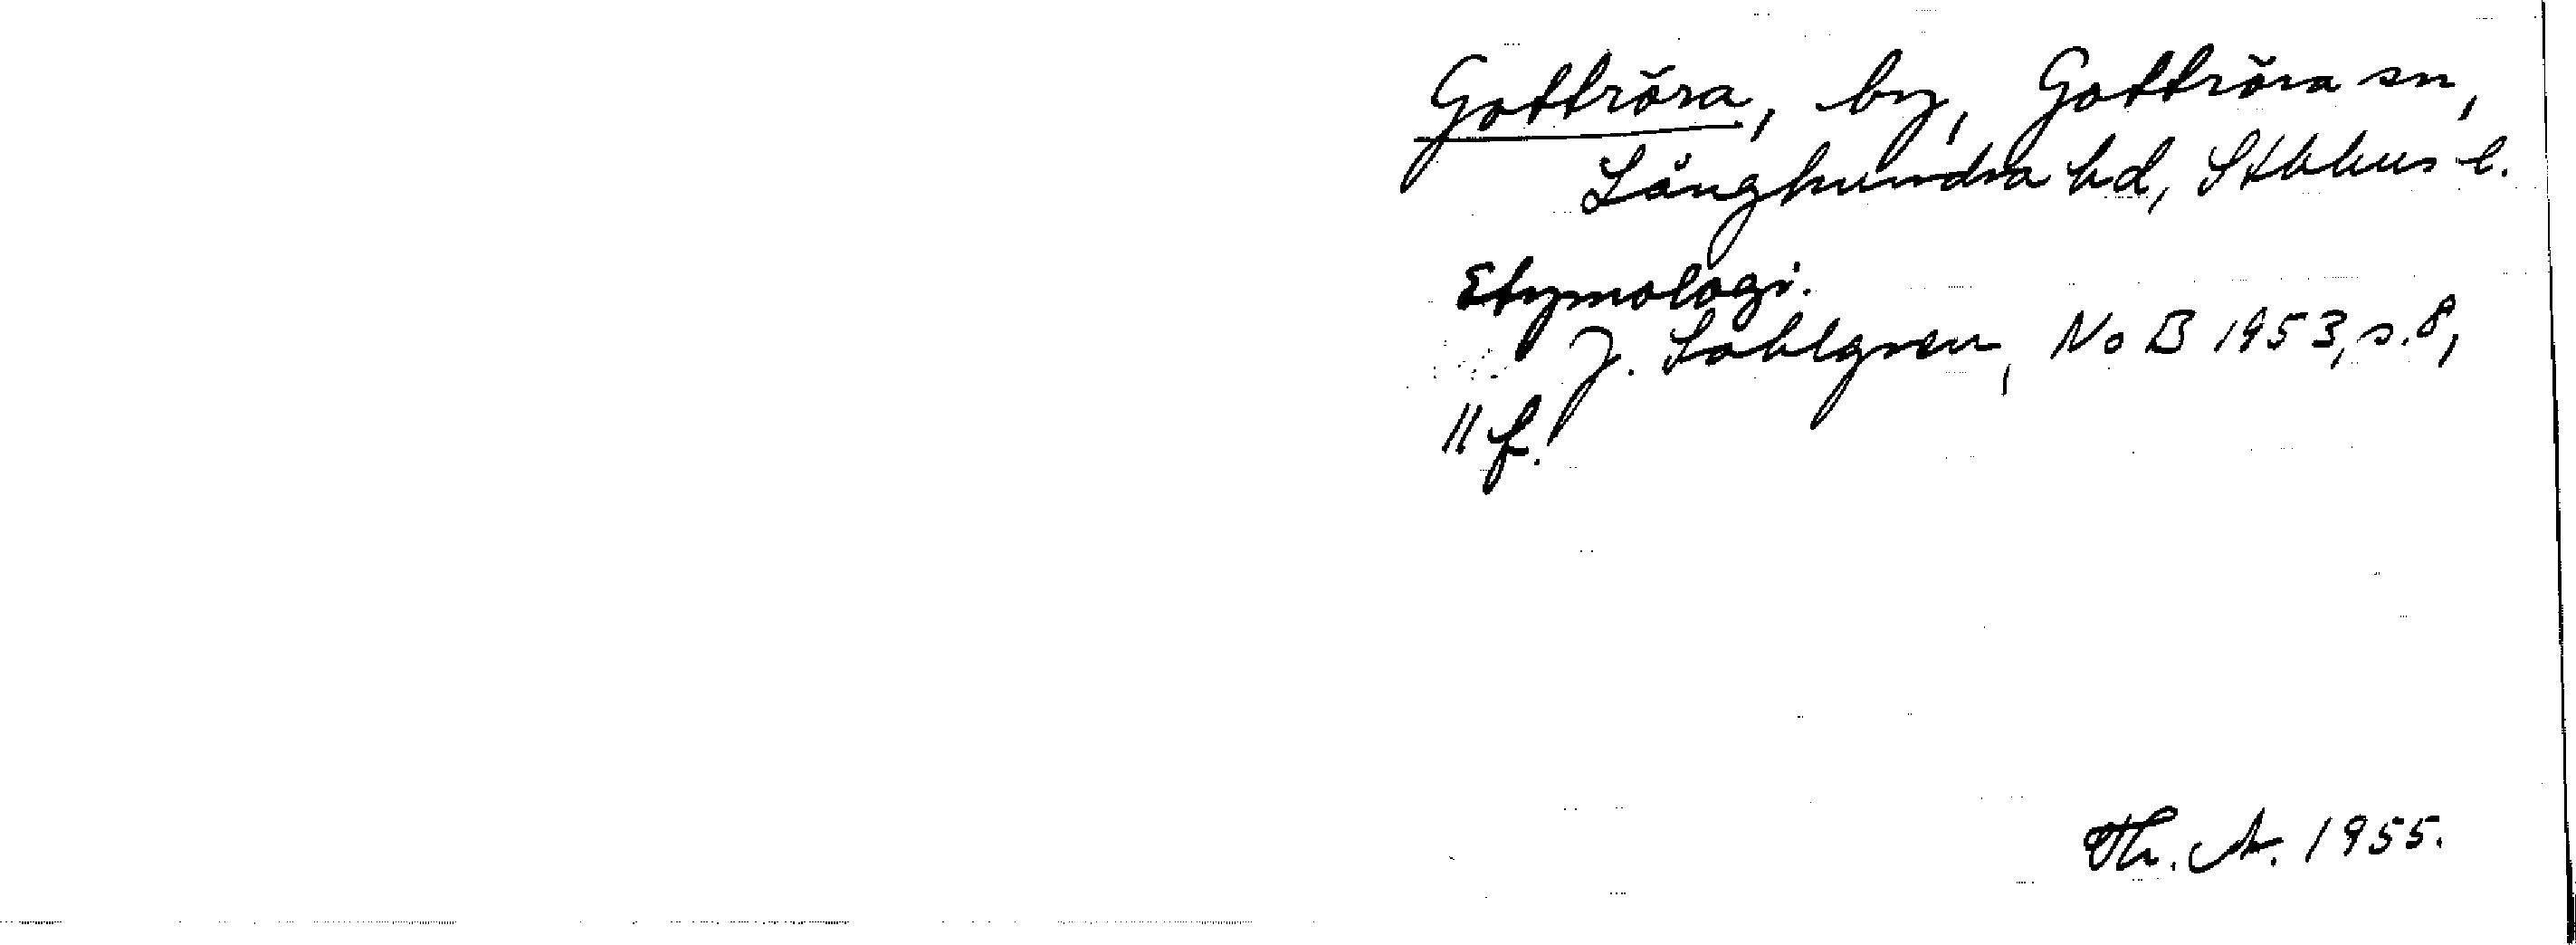 Gottröra, by, Gottröra sn,
Långhundra hd, Sthlms l.
Etymologi.
J. Sahlgren, NoB 1953, s. 8,
11 f.
Th. A. 1955.